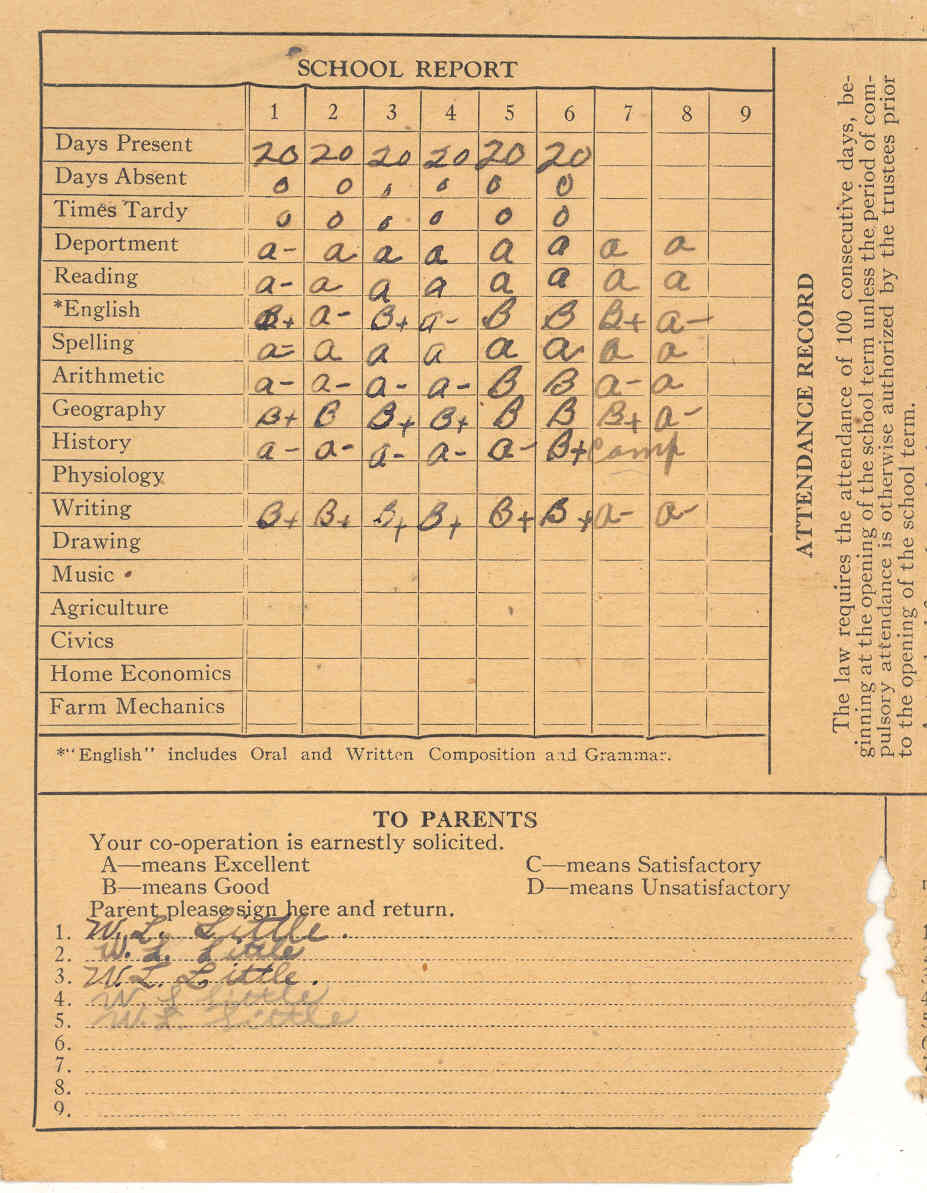 SCHOOL REPORT
1 2 3 4 5 6 7 8 9
Days Present 20 20 20 20 20 20
Days Absent 0 0 0 0 0 0
Times Tardy 0 0 0 0 0 0
Deportment a- a a a a a a a
Reading a- a a a a a a a
*English B+ a- B+ a- B B B+ a-
Spelling a= a a a a a a a
Arithmetic a- a- a- a- B B a- a
Geography B+ B B+ B+ B B B+ a-
History a- a- a- a- a- B+ Comp
Physiology
Writing B+ B+ B+ B+ B+ B+ a- a-
Drawing
Music
Agriculture
Civics
Home Economics
Farm Mechanics
*"English" includes Oral and Written Composition and Grammar.
ATTENDANCE RECORD
The law requires the attendance of 100 consecutive days, be-
ginning at the opening of the school term unless the period of com-
pulsory attendance is otherwise authorized by the trustees prior
to the opening of the school term.
TO PARENTS
Your co-operation is earnestly solicited.
A—means Excellent C—means Satisfactory
B—means Good D—means Unsatisfactory
Parent please sign here and return.
1. W. L. Little.
2. W. L. Little
3. W. L. Little.
4. W. L Little
5. W. L. Little
6.
7.
8.
9.